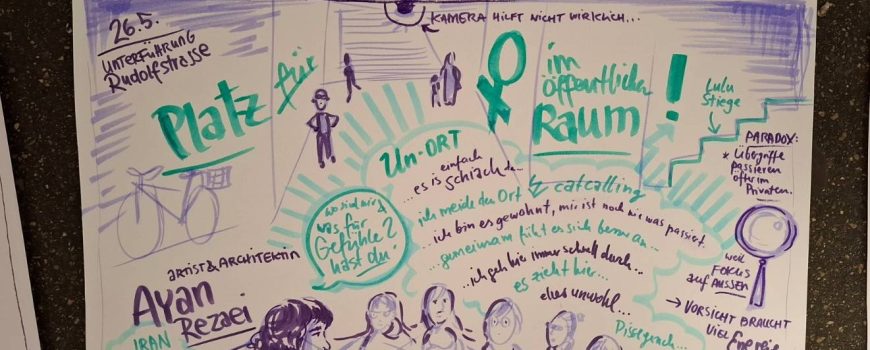 26.5.
UNTERFÜHRUNG
Rudolfstrasse
KAMERA HILFT NICHT WIRKLICH...
Platz für
im
öffentlichen
Raum!
Lulu
Stiege
PARADOX:
* Übergriffe
passieren
öfter im
Privaten.
Un-ORT
...es is einfach schiach da...
ich meide den Ort
catcalling
...ich bin es gewohnt, mir ist noch nie was passiert.
...gemeinsam fühlt es sich besser an...
...ich geh hier immer schnell durch...
es zieht hier...
eher unwohl...
Pissgeruch...
wo sind wir &
was für
Gefühle
hast du?
weil
FOKUS
auf AUSSEN
→ VORSICHT BRAUCHT
VIEL Energie
ARTIST & ARCHITEKTIN
Ayan
Rezaei
IRAN